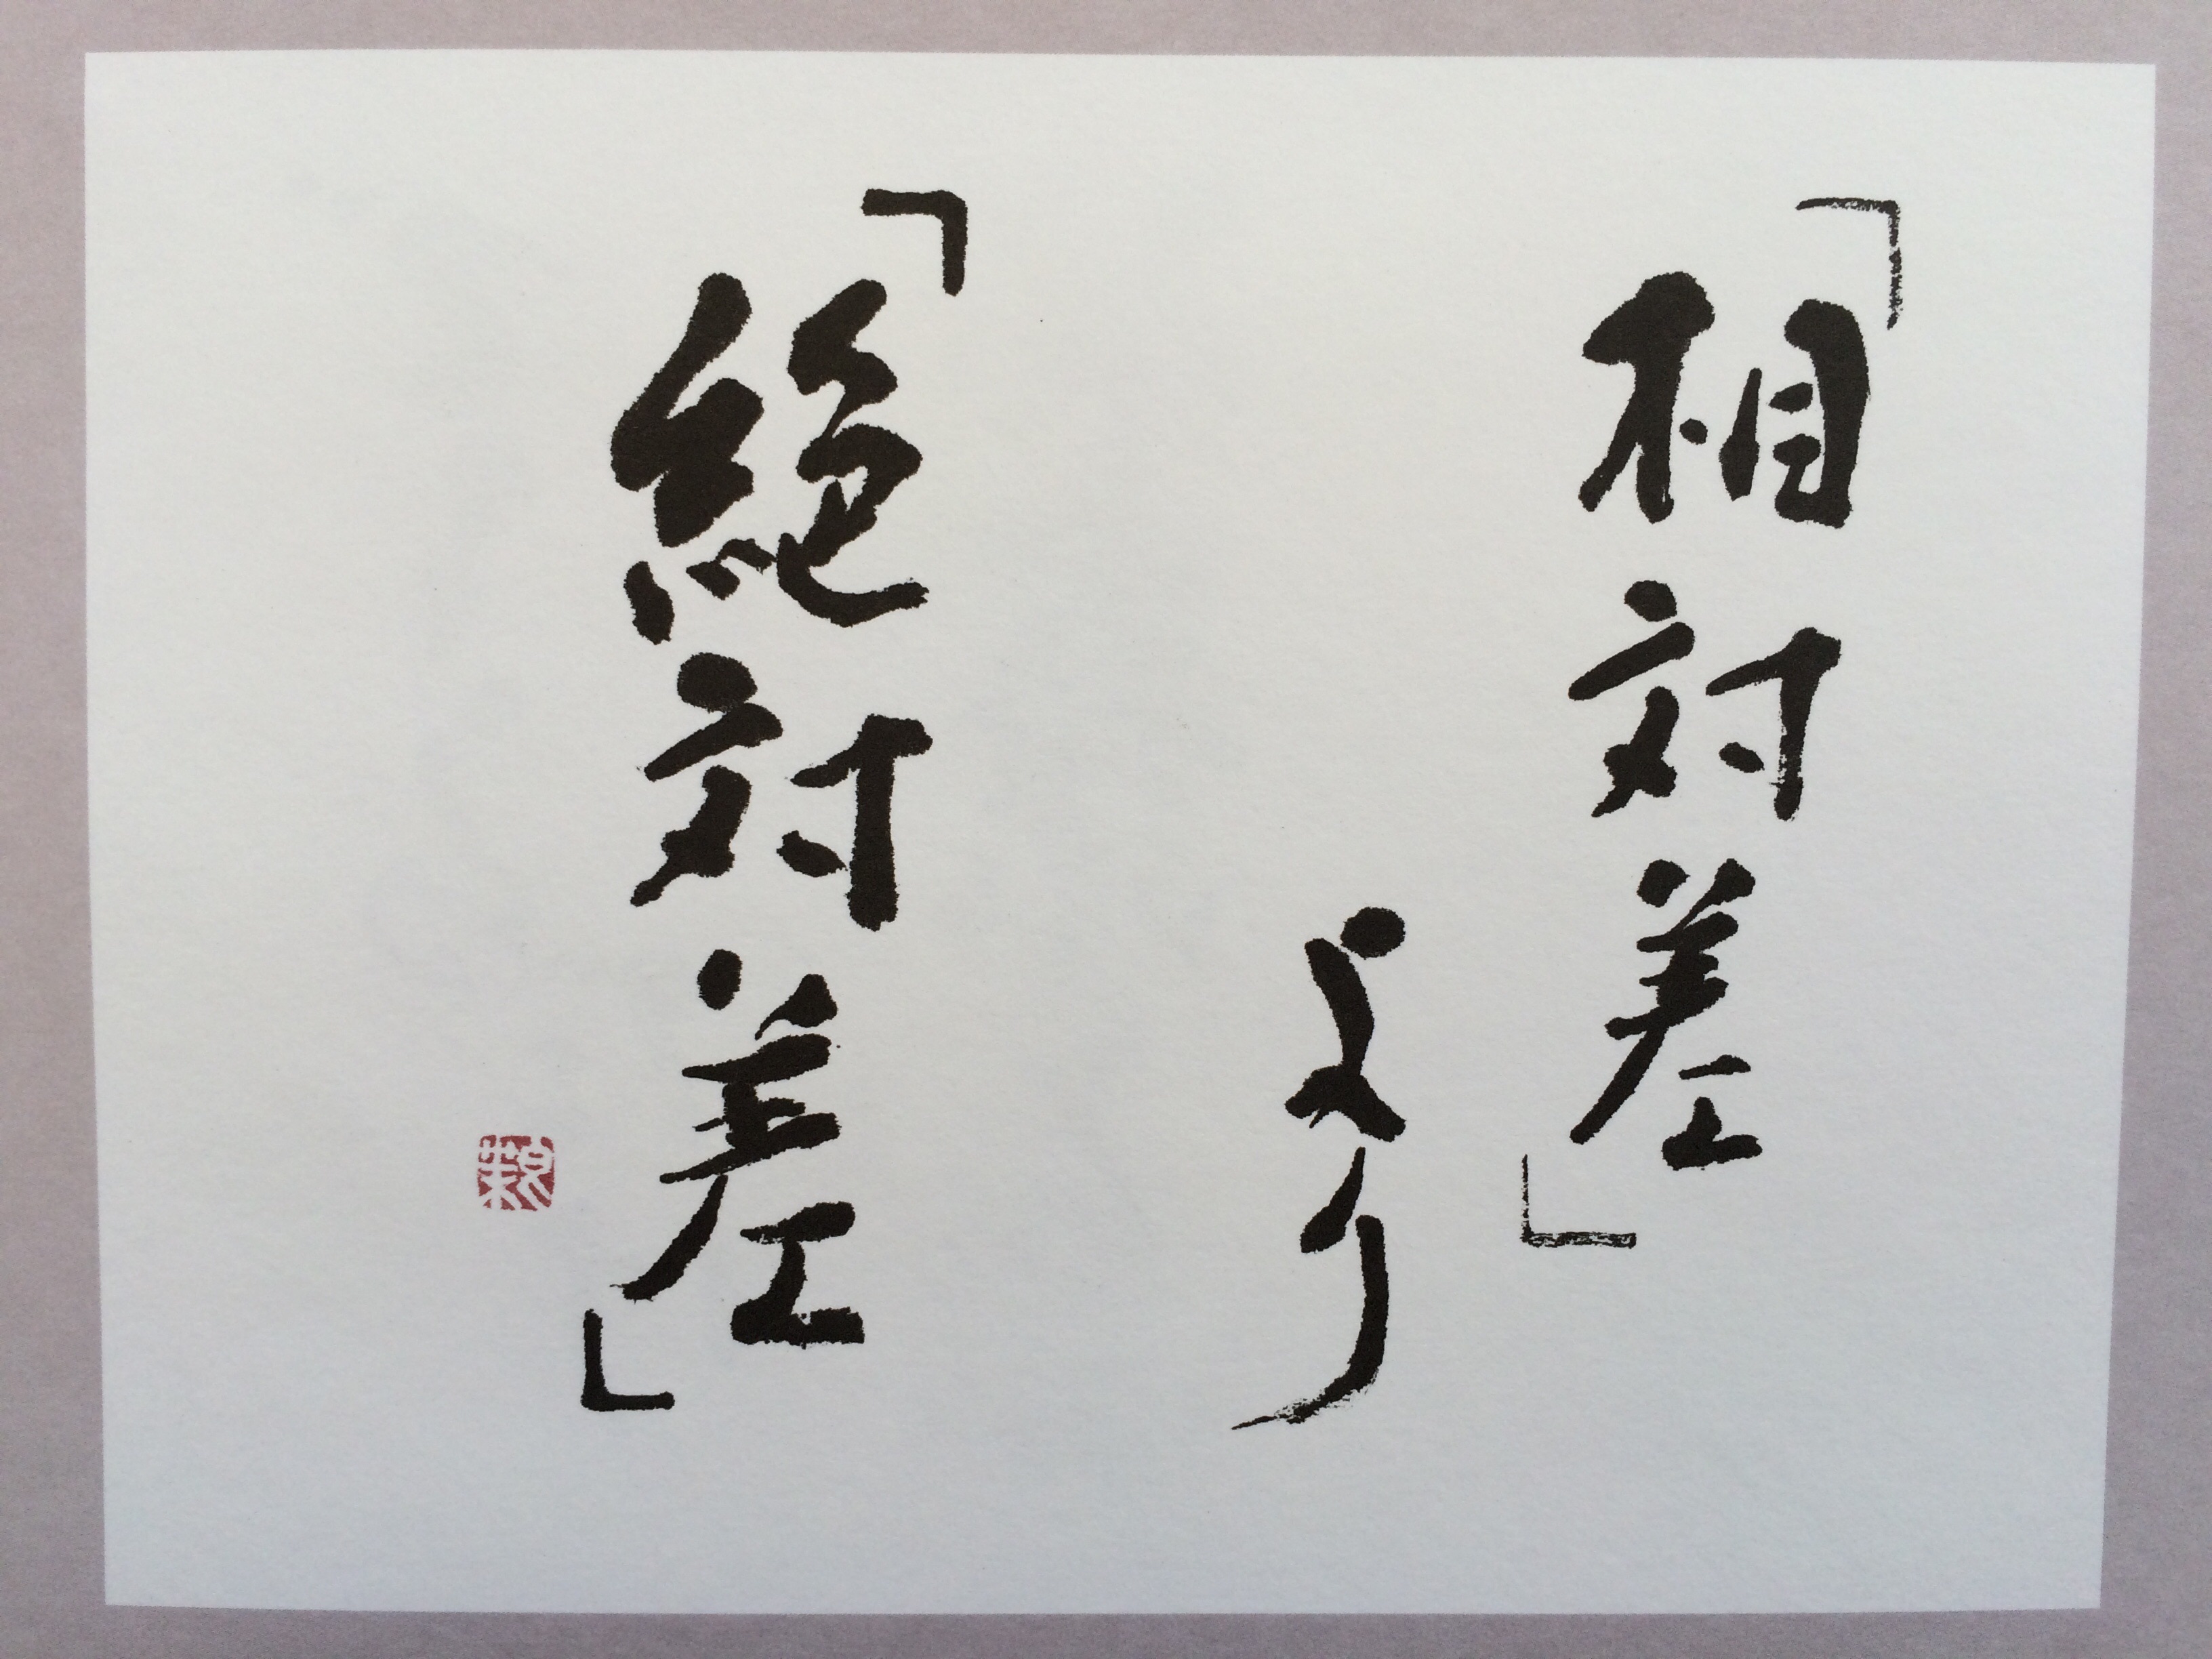 「相対差」
より
「絶対差」